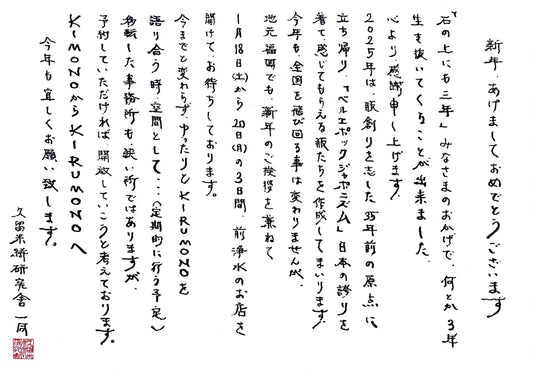 新年、あけましておめでとうございます
「石の上にも三年」みなさまのおかげで、何とか3年
生き抜いてくることが出来ました。
心より感謝申し上げます。
2025年は、服創りを志した35年前の原点に
立ち帰り、「ベルエポックジャポニズム」日本の誇りを
着て、感じてもらえる服たちを作成してまいります。
今年も、全国を飛び回る事は変わりませんが、
地元福岡でも、新年のご挨拶を兼ねて
1月18日(土)から20日(月)の3日間、前浄水のお店を
開けて、お待ちしております。
今までと変わらず、ゆったりとKIRUMONOを
語り合う時・空間として・・・(定期的に行う予定)
移転した事務所も、狭い所ではありますが、
予約していただければ、開放していこうと考えております。
KIMONOからKIRUMONOへ
今年も宜しくお願い致します。
久留米術研究舎一同